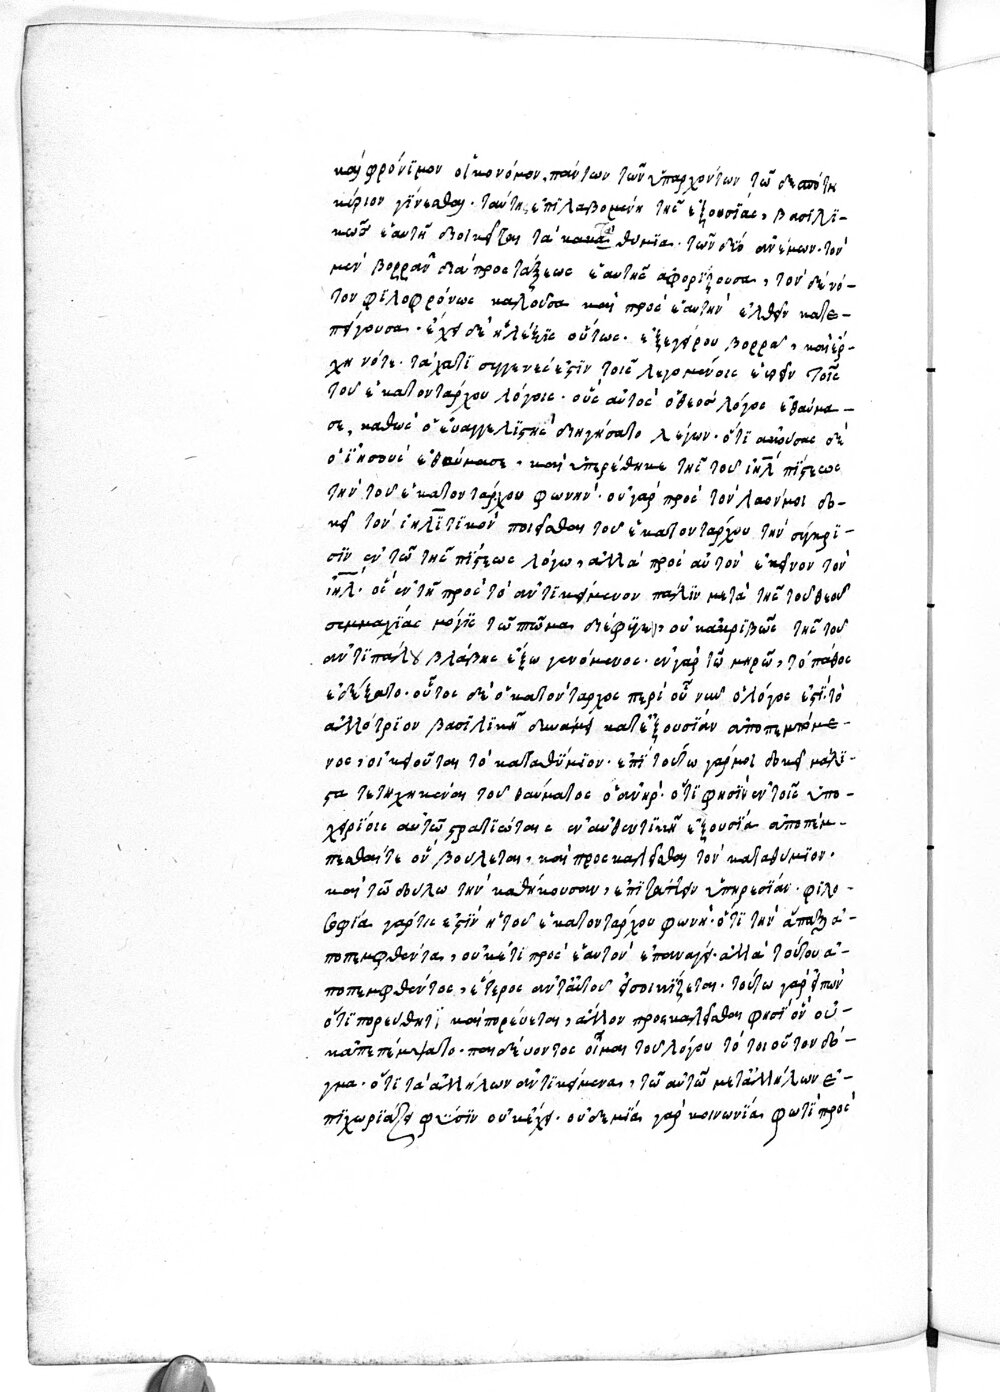 καὶ φρόνιμον οἰκονόμον, πάντων τῶν ὑπαρχόντων τῶ δεσπότη
κύριον γίνεσθαι· ταύτης ἐπιλαβομένη τῆς ἐξουσίας, βασιλι-
κῶς ἑαυτῆ διοικεῖται τὰ καταθύμια· τῶν δύο ἀνέμων· τὸν
μὲν βορρᾶν διὰ προστάξεως ἑαυτῆς ἀφορίζουσα, τὸν δὲ νό-
τον φιλοφρόνως καλοῦσα καὶ πρὸς ἑαυτὴν ἐλθεῖν κατε-
πείγουσα· ἔχει δὲ ἡ λέξις οὕτως· ἐξεγείρου βορρᾶ, καὶ ἔρ-
χη νότε· τάχα τι συγγενές ἐστιν τοῖς λεγομένοις εὑρεῖν τοῖς
τοῦ ἑκατοντάρχου λόγοις· οὓς αὐτὸς ὁ θεὸς λόγος ἐθαύμα-
σε, καθὼς ὁ εὐαγγελιστὴς διηγήσατο λέγων· ὅτι ἀκούσας δὲ
ὁ ἰησοῦς ἐθαύμασε, καὶ ὑπερέθηκε τῆς τοῦ ἰηλ πίστεως
τὴν τοῦ ἑκατοντάρχου φωνήν· οὐ γὰρ πρὸς τὸν λαόν μοι δο-
κεῖ τὸν ἰηλιτικὸν ποιεῖσθαι τοῦ ἑκατοντάρχου τὴν σύγκρι-
σιν ἐν τῶ τῆς πίστεως λόγω, ἀλλὰ πρὸς αὐτὸν ἐκεῖνον τὸν
ἰηλ· ὃς ἐν τῆ πρὸς τὸ ἀντικείμενον πάλιν μετὰ τῆς τοῦ θεοῦ
συμμαχίας μόγις τῶ πτῶμα διέφυγεν, οὐκ ἀκριβῶς τῆς τοῦ
ἀντιπάλου βλάβης ἔξω γενόμενος· ἐν γὰρ τῶ μηρῶ, τὸ πάθος
ἐδέξατο· οὗτος δὲ ὁ ἑκατόνταρχος περὶ οὗ νῦν ὁ λόγος ἐστὶ τὸ
ἀλλότριον βασιλικῆ δυνάμει κατ' ἐξουσίαν ἀποπεμπόμε-
νος, οἰκειοῦται τὸ καταθύμιον· ἐπὶ τούτω γάρ μοι δοκεῖ μάλι-
στα τετυχηκέναι τοῦ θαύματος ὁ ἀνήρ· ὅτι φησὶν ἐν τοῖς ὑπο-
χειρίοις αὐτῶ στρατιώταις ἐν αὐθεντικῆ ἐξουσία ἀποπέμ-
πεσθαί τε ὃν βούλεται, καὶ προσκαλεῖσθαι τὸν καταθύμιον·
καὶ τῶ δούλω τὴν καθήκουσαν, ἐπιτάττειν ὑπηρεσίαν· φιλο-
σοφία γάρ τις ἐστὶν ἡ τοῦ ἑκατοντάρχου φωνή· ὅτι τὴν ἅπαξ ἀ-
ποπεμφθέντα, οὐκέτι πρὸς ἑαυτὸν ἐπανάγει· ἀλλὰ τούτου ἀ-
ποπεμφθέντος, ἕτερος ἀντ' αὐτοῦ εἰσοικίζεται· τούτω γὰρ εἰπὼν
ὅτι πορεύθητι καὶ πορεύεται, ἄλλον προσκαλεῖσθαι φησὶ ὃν οὐ-
κ ἀπεπέμψατο· παιδεύοντος οἶμαι τοῦ λόγου τὸ τοιοῦτον δό-
γμα· ὅτι τὰ ἀλλήλων ἀντικείμενα, τῶ αὐτῶ μετ' ἀλλήλων ἐ-
πιχωριάζειν φύσιν οὐκ ἔχει· οὐδεμία γὰρ κοινωνία φωτὶ πρὸς